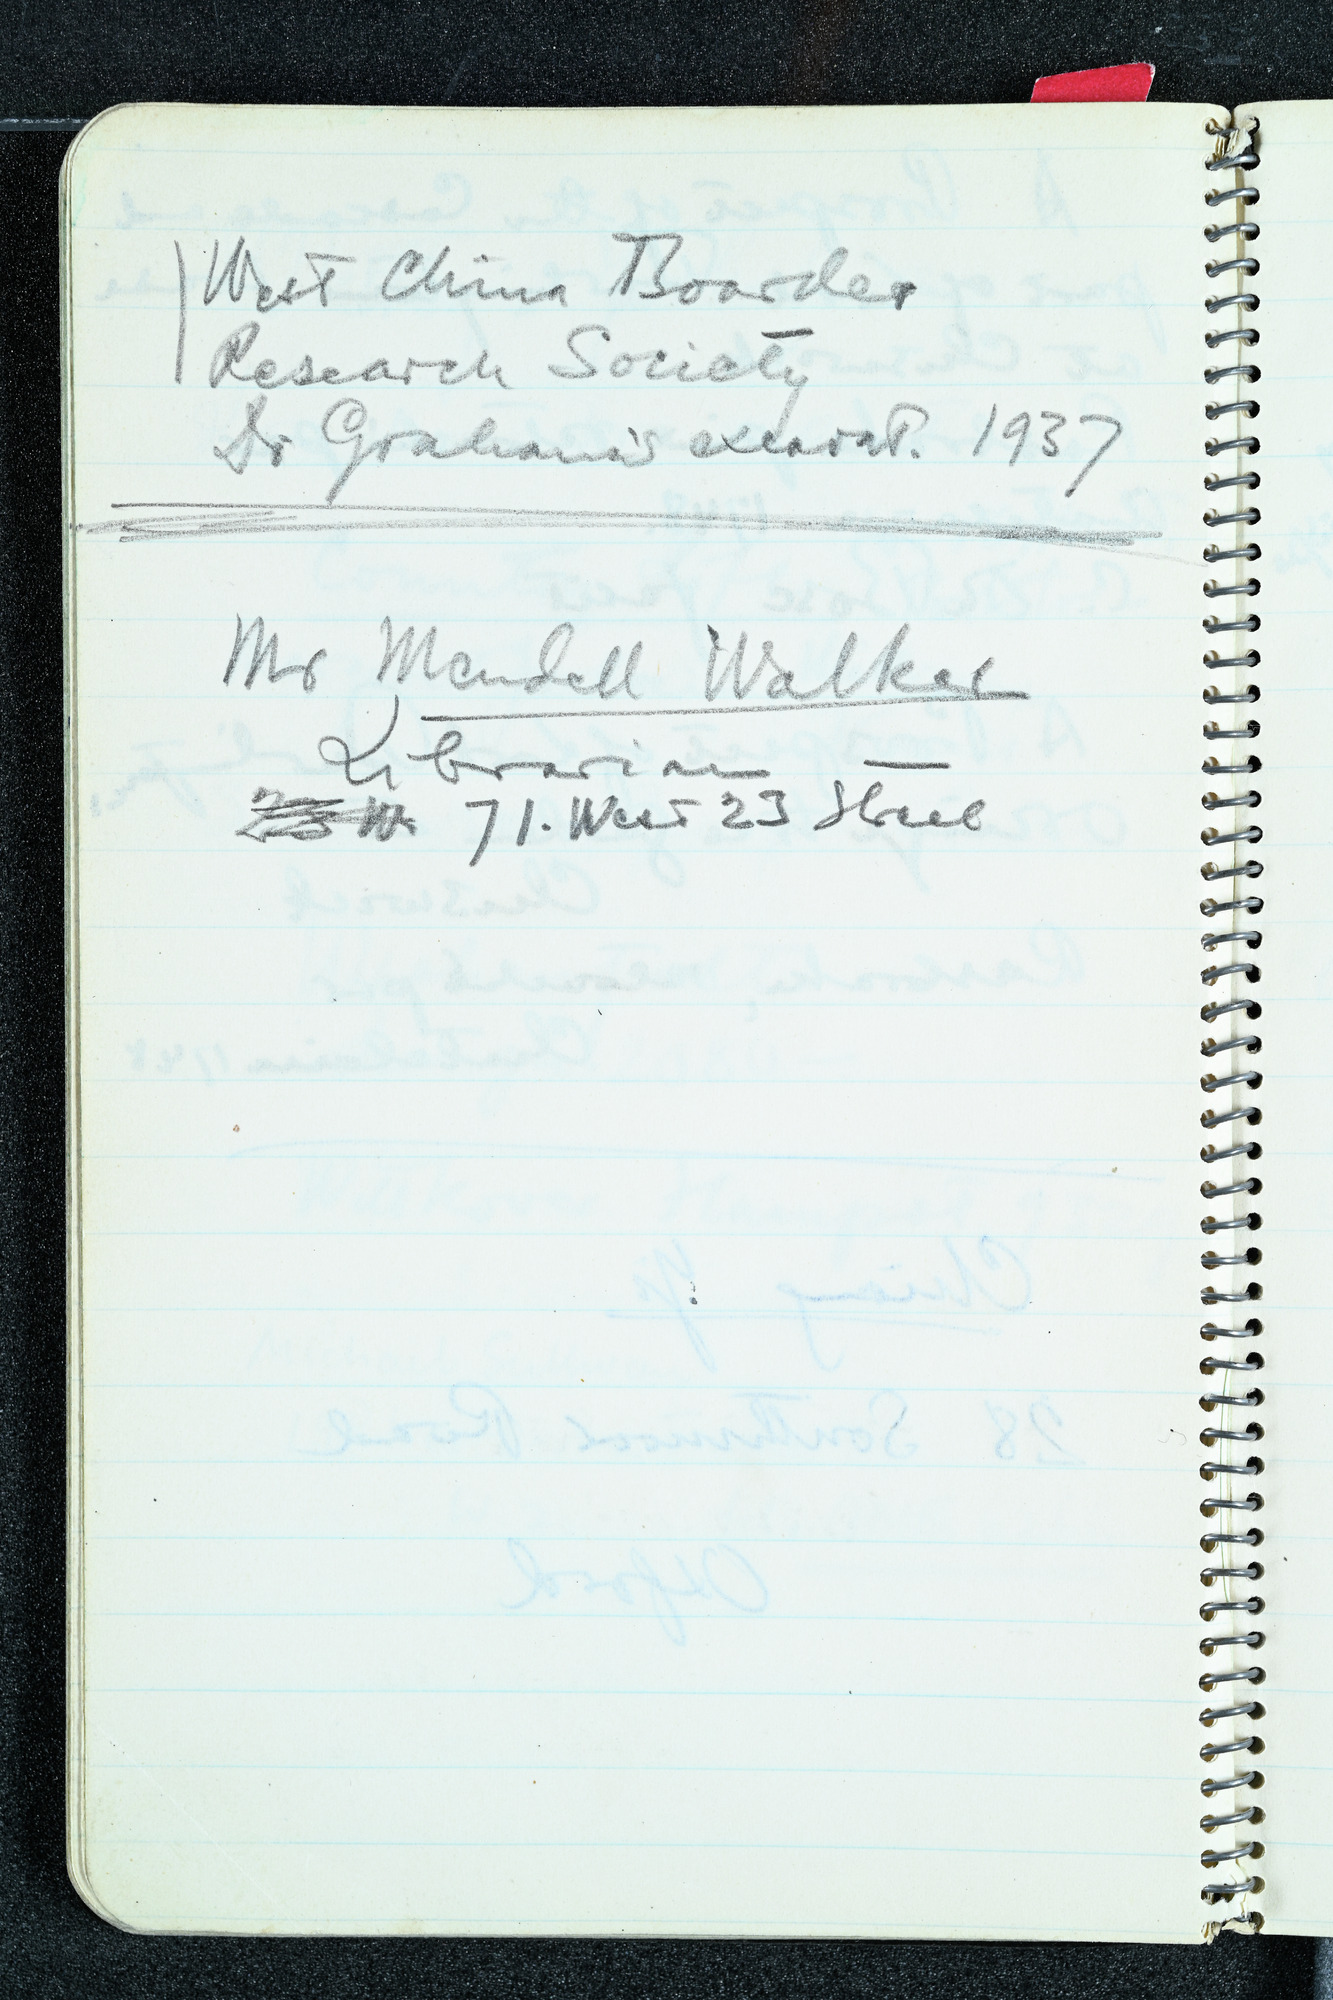 West China Boarder
Research Society
Dr Graham's excavat. 1937
Mr Mendell Walker
Librarian —
71. West 23 Street